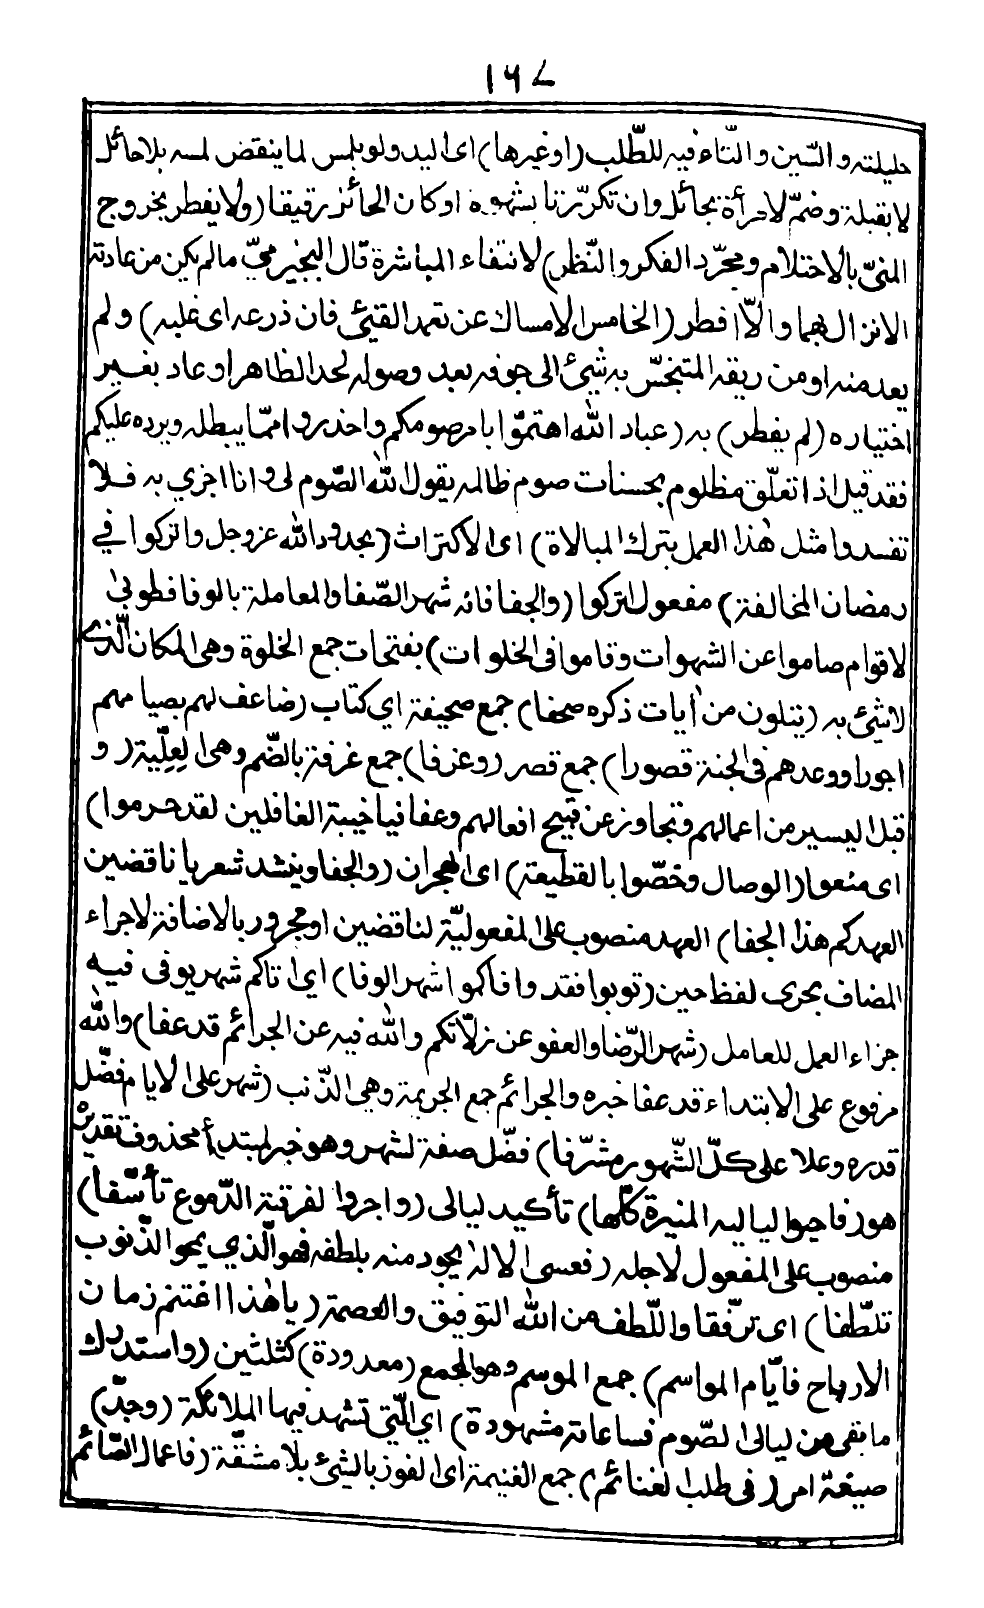 ١٦٧
حليلته والسّين والتّاء فيه للطّلب (اوغيرها) اى اليد ولوبلمس لما ينقض لمسه بلاحائل
لا بقبلة وضمّ لامرأة بحائل وان تكرّرتا بشهوة اوكان الحائل رقيقا (ولا يفطر بخروج
المنىّ بالاحتلام ومجرّد الفكر والنّظر) لانتفاء المباشرة قال البجيرميّ مالم يكن من عادته
الانزال بهما والّا افطر (الخامس الامساك عن تعمد القيئ فان ذرعه اى غلبه) ولم
يعد منه اومن ريقه المتنجّس به شيئ الى جوفه بعد وصوله لحد الظاهر اوعاد بغير
اختياره (لم يفطر) به (عباد الله اهتمّوا بامرصومكم واحذروا ممّا يبطله ويرده عليكم
فقد قيل اذا تعلّق مظلوم بحسنات صوم ظالمه يقول الله الصّوم لى وانا اجزي به فلا
تفسدوا مثل هٰذا العمل بترك المبالاة) اى الاكتراث (بحدود الله عزوجل واتركوا في
رمضان المخالفة) مفعول اتركوا (والجفا فانه شهر الصّفا والمعاملة بالوفا فطوبىٰ
لاقوام صاموا عن الشهوات وقاموا فى الخلوات) بفتحات جمع الخلوة وهى المكان الّذي
لاشيئ به (يتلون من أيات ذكره صحفا) جمع صحيفة اي كتاب (ضاعف لهم بصيامهم
اجورا ووعدهم فى الجنة قصورا) جمع قصر (وغرفا) جمع غرفة بالضّم وهى العِلِّية (و
قبل اليسير من اعمالهم وتجاوز عن قبيح افعالهم وعفا فياخيبة الغافلين لقد حرموا)
اى منعوا (الوصال وخصّوا بالقطيعة) اى الهجران (والجفا وينشد شعر يا ناقضين
العهد كم هذا الجفا) العهد منصوب على المفعوليّة لناقضين اومجرور بالاضافة لاجراء
المضاف بجرى لفظ حين (توبوا فقد وافاكموا شهر الوفا) اي اتاكم شهر يوفى فيه
جزاء العمل للعامل (شهر الرّضا والعفو عن زلّاتكم والله فيه عن الجرائم قد عفا) والله
مرفوع على الابتداء قد عفا خبره والجرائم جمع الجريمة وهى الذّنب (شهر على الايام فضّل
قدره وعلا على كلّ الشّهور مشرّفا) فضّل صفة لشهر وهو خبر لمبتدأ محذوف تقديره
هو (فاحيوا لياليه المنيرة كلّها) تأكيد ليالى (واجروا لفرقته الدّموع تأسّفا)
منصوب على المفعول لاجله (فعسى الالٰه يجود منه بلطفه فهو الّذي يمحو الذّنوب
تلطّفا) اى ترّفقا واللّطف من الله التوفيق والعصمة (ياهٰذا اغتنم زمان
الارباح فأيّام المواسم) جمع الموسم وهو المجمع (معدودة) كثلثين (واستدرك
ما بقى من ليالى الصّوم فساعاته مشهودة) اي الّتي تشهد فيها الملائكة (وجدّ)
صيغة امر (فى طلب الغنائم) جمع الغنيمة اى الفوز بالشيئ بلا مشقّة (فاعمال الصّائم